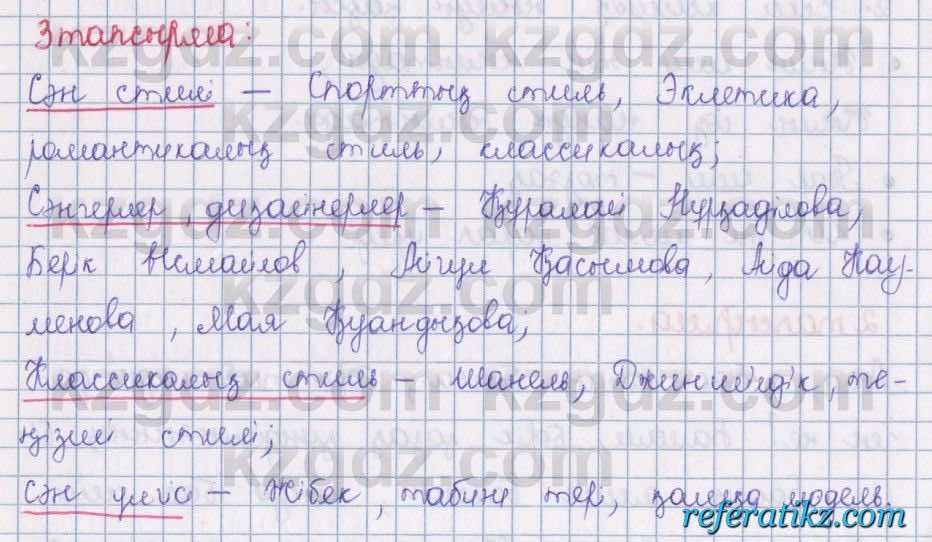 3 тапсырма:
Сән стилі – Спорттық стиль, Эклетика,
романтикалық стиль, классикалық;
Сәнгерлер, дизайнерлер – Құралай Нұрқаділова,
Берік Исмаилов, Айгүл Қасымова, Аида Кау-
менова, Мая Қуандықова;
Классикалық стиль – Шанель, Джинсиідік, те-
ңізші стилі;
Сән үлгісі – Жібек, табиғи тері, модель.
kzgdz.com
referatikz.com